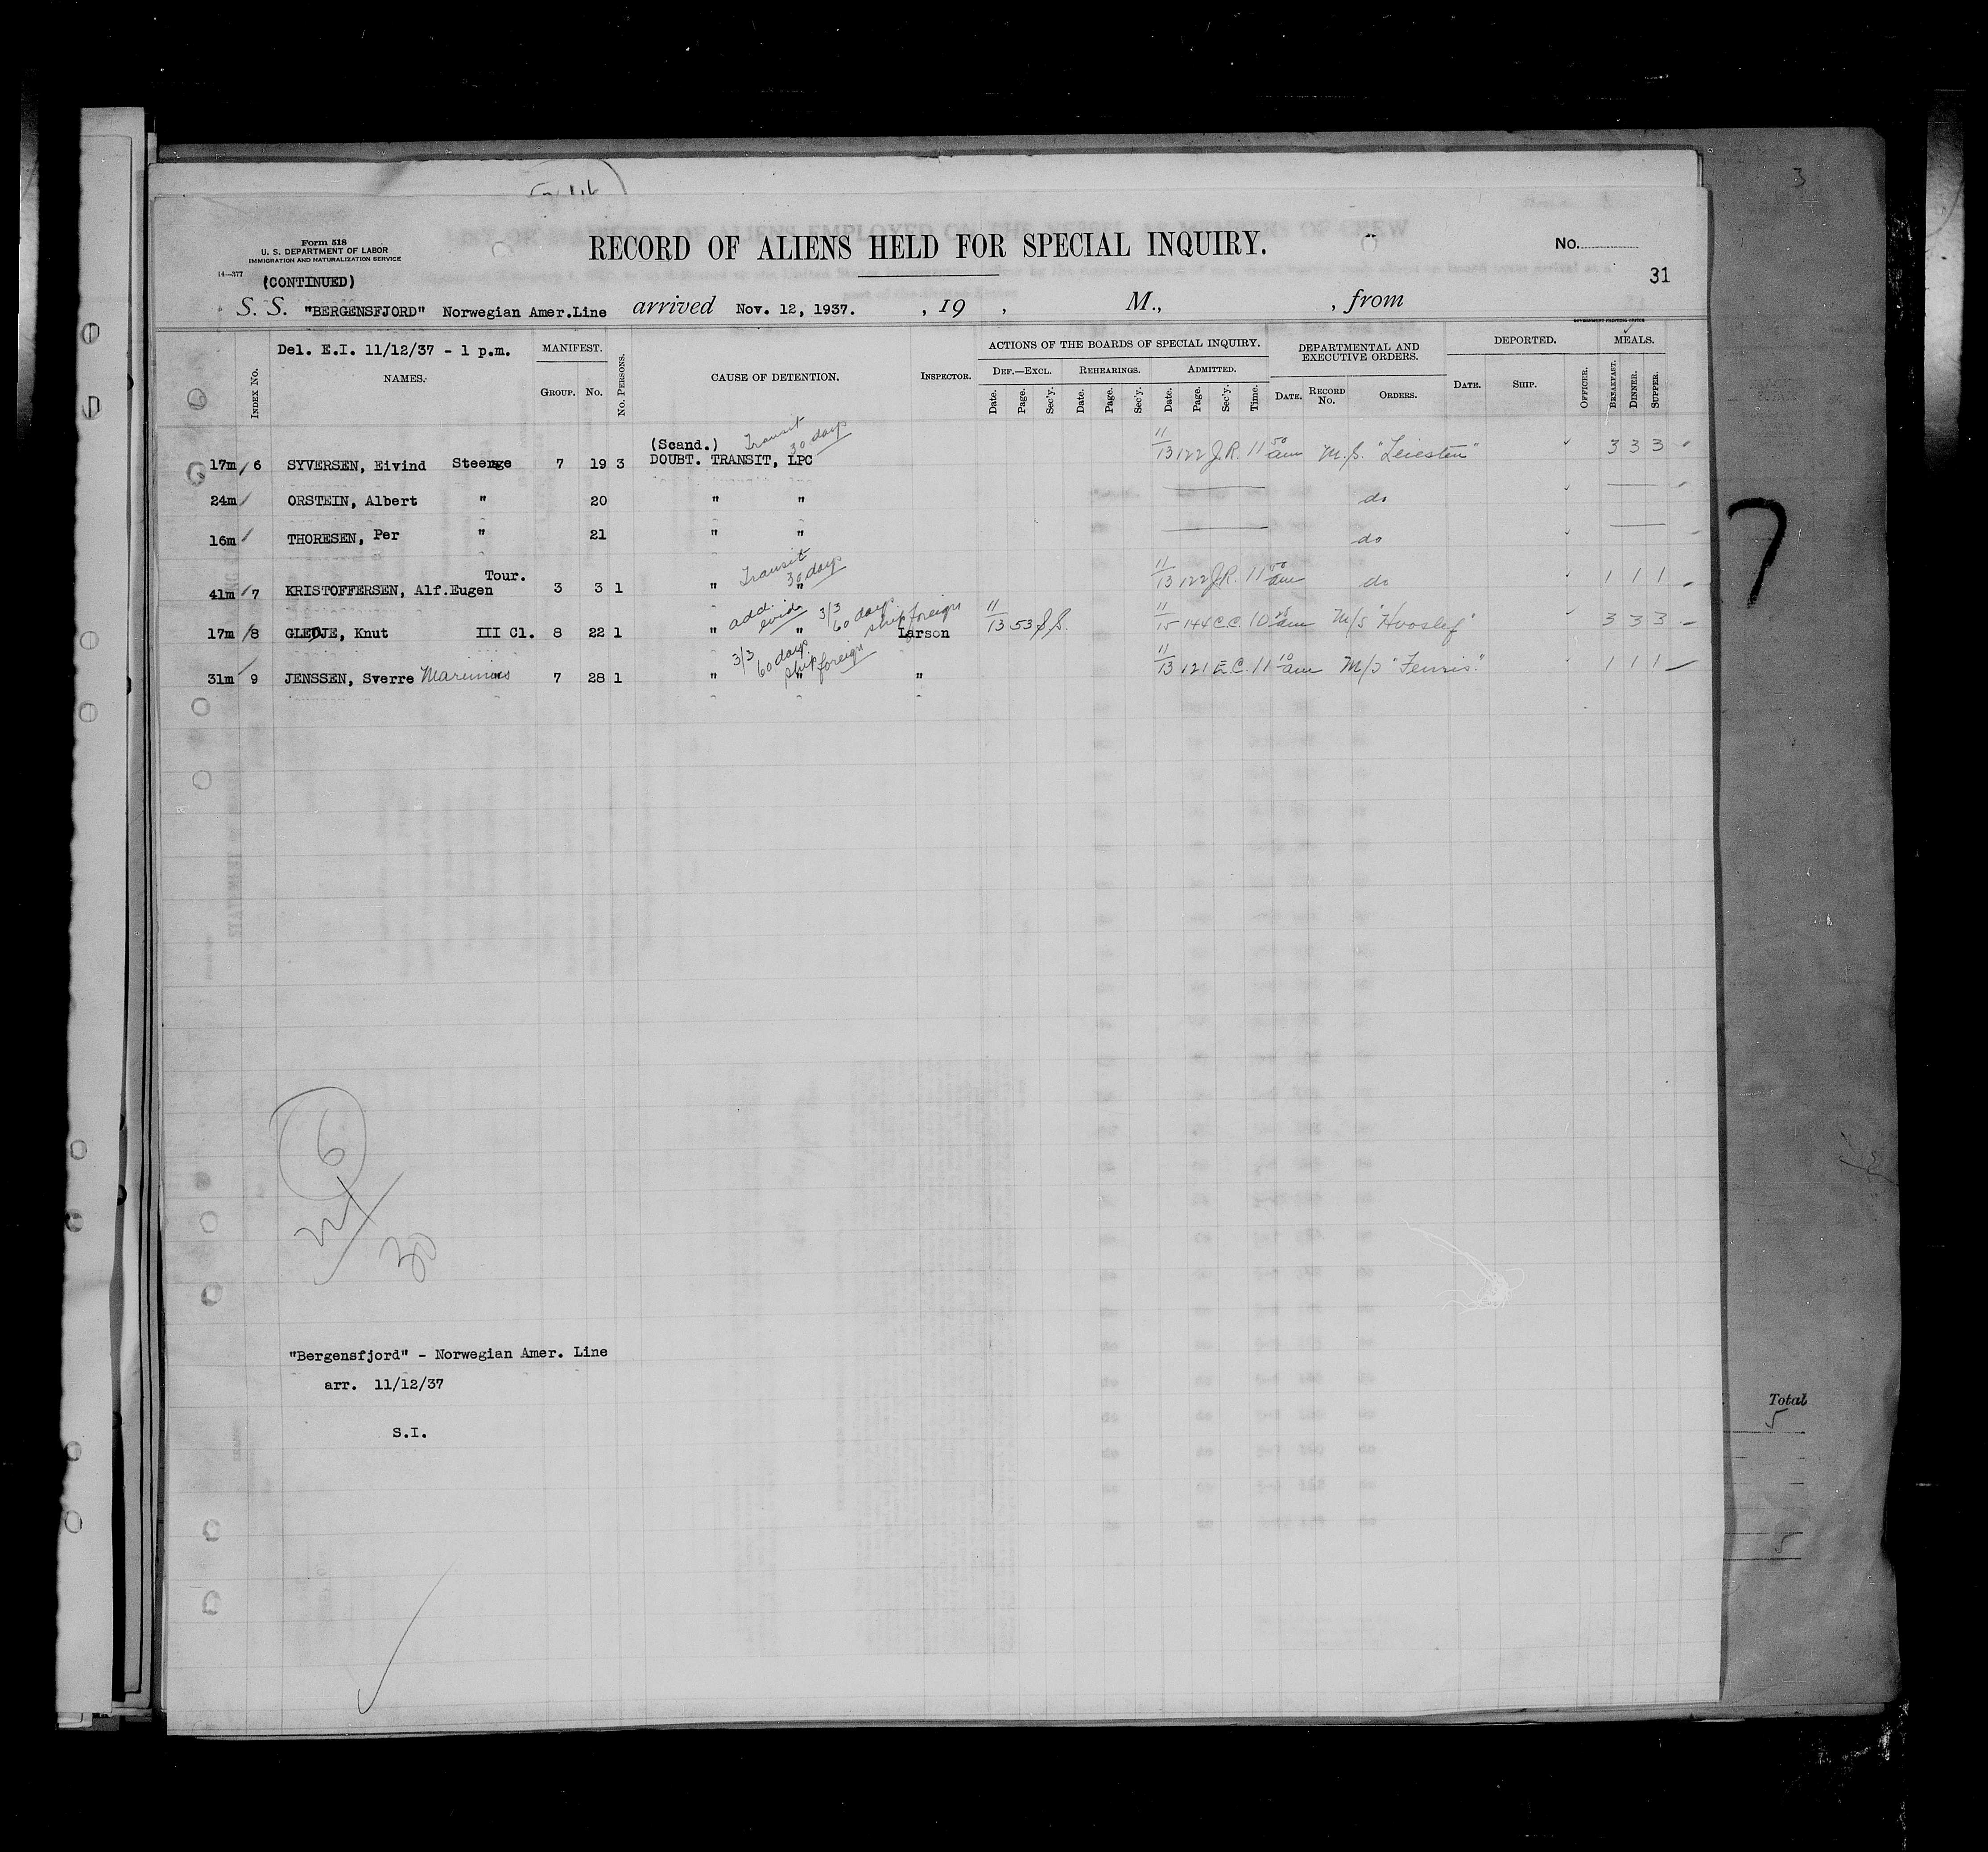 Form 518
U. S. DEPARTMENT OF LABOR
IMMIGRATION AND NATURALIZATION SERVICE
14—377
(CONTINUED)
RECORD OF ALIENS HELD FOR SPECIAL INQUIRY.
No.
31
3
S. S. "BERGENSFJORD" Norwegian Amer.Line arrived Nov. 12, 1937. , 19 , M., , from
GOVERNMENT PRINTING OFFICE
Del. E.I. 11/12/37 - 1 p.m.
INDEX No. NAMES. MANIFEST. GROUP. No. No. PERSONS. CAUSE OF DETENTION. INSPECTOR.
ACTIONS OF THE BOARDS OF SPECIAL INQUIRY. DEPARTMENTAL AND EXECUTIVE ORDERS. DEPORTED. MEALS.
DEF.—EXCL. REHEARINGS. ADMITTED.
Date. Page. Sec'y. Date. Page. Sec'y. Date. Page. Sec'y. Time. DATE. RECORD No. ORDERS. DATE. SHIP. OFFICER. BREAKFAST. DINNER. SUPPER.
(Scand.) Transit 30 days
17m 6 SYVERSEN, Eivind Steerage 7 19 3 DOUBT. TRANSIT, LPC 11/13 122 J.R. 11 50 am M.S. 3 3 3
24m ORSTEIN, Albert " 20 " " do
16m THORESEN, Per " 21 " " do
Transit 30 days
41m 7 KRISTOFFERSEN, Alf.Eugen Tour. 3 3 1 " " 11/13 122 J.R. 11 50 am do 1 1 1
add. evid. 3/3 60 days ship foreign
17m 8 GLEDJE, Knut III Cl. 8 22 1 " " Larson 11/13 53 S.S. 11/15 144 C.C. 10 am M/S 3 3 3
3/3 60 days ship foreign
31m 9 JENSSEN, Sverre Marinius 7 28 1 " " " 11/13 121 E.C. 11 10 am M/S "Fenris" 1 1 1
7
6
30
"Bergensfjord" - Norwegian Amer. Line
arr. 11/12/37
S.I.
Total
5
5